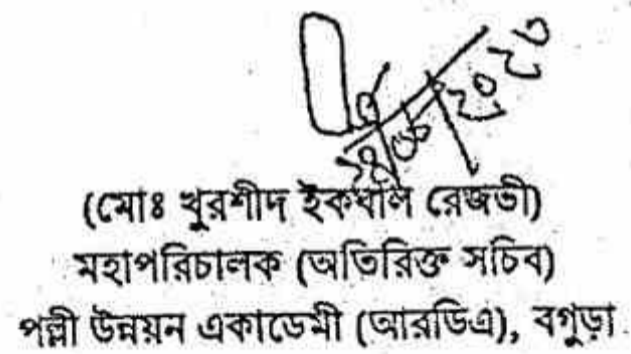 (মোঃ খুরশীদ ইকবাল রেজভী)
মহাপরিচালক (অতিরিক্ত সচিব)
পল্লী উন্নয়ন একাডেমী (আরডিএ), বগুড়া